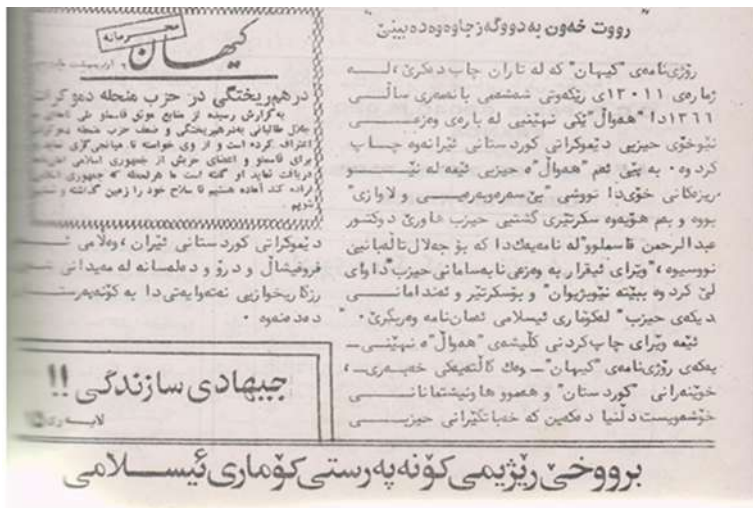 رووت خەون بە دوو گەز جاوەوە دەبینێ
رۆژی نامەی "کیهان" کە لە تاران چاپ دەکرێ، لــە
ژمارەی ١٣٠١١ی رێکەوتی شەشەمی بانەمەری ساڵــی
١٣٦٦دا "هەواڵ"ێکی نهێنیی لە بارەی وەزعــی
نێوخۆی حیزبی دێموکراتی کوردستانی ئێرانەوە چــاپ
کردوە٠ بە پێی ئەم "هەواڵ"ە حیزبی ئێمە لە نێــو
ریزەکانی خۆیدا تووشی "بێ سەرەوبەرەیــی و لاوازی"
بووە و بەم هۆیەوە سکرتێری گشتیی حیزب هاوڕێ دوکتور
عبدالرحمن قاسملوو لە نامەیەکدا کە بۆ جەلال تاڵەبانیی
نووسیوە، "وێرای ئیقرار بە وەزعی نابەسامانی حیزب" داوای
لێ کردوە ببێتە نێوبژیوان" و بۆسکرتێر و ئەندامانــی
دیکەی حیزب" لەکۆماری ئیسلامی ئەمان‌نامە وەربگرێ٠"
ئێمە وێرای چاپ کردنی کلیشەی "هەواڵ"ە نهێنــی ـ
یەکەی رۆژی نامەی "کیهان" ـ وەک کاڵتەیەکی خەبــەری ـ،
خوێنەرانی "کوردستان" و هەموو هاونیشتمانانــی
خۆشەویست دڵنیا دەکەین کە خەباتگێرانی حیزبــی
محرمانه
کیهان
درهم ریختگی در حزب منحله دموکرات
به گزارش رسیده از منابع موثق قاسملو طی نامه‌ای به
جلال طالبانی به‌درهم‌ریختگی و ضعف حزب منحله دموکرات
اعتراف کرده است و از وی خواسته تا میانجی‌گری نماید و
برای قاسملو و اعضای حزبش از جمهوری اسلامی امان‌نامه
دریافت نماید او گفته است ما هرلحظه که جمهوری اسلامی
اراده کند آماده هستیم تا سلاح خود را زمین گذاشته و تسلیم
شویم
دێموکراتی کوردستانی ئێران، وەڵامی ئــە
فروفیشاڵ و درۆ و دەلەسانە لە مەیدانی شــە
رزگاریخوازیی نەتەوایەتی دا بە کۆنەپەرســت
دەدەنەوە ٠
جیهادی سازندگی !!
لاپەڕەی
برووخێ رێژیمی کۆنەپەرستی کۆماری ئیســلامی